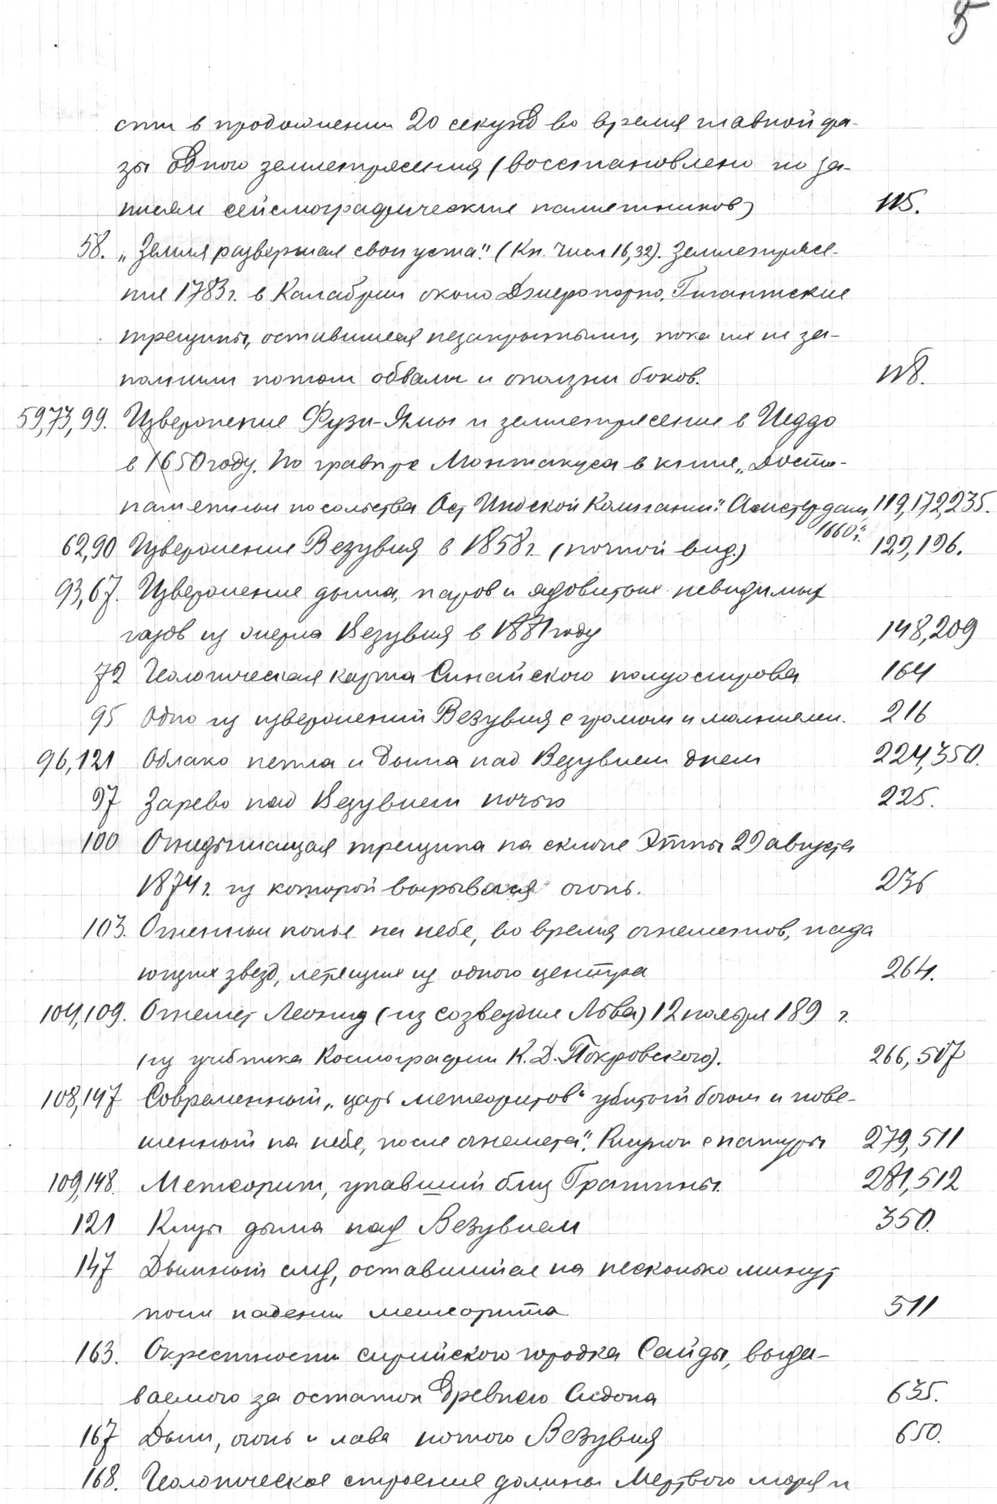 5
сти в продолжении 20 секунд во время главной фа-
зы одного землетрясения (восстановлено по за-
писям сейсмографических памятников) 115.
58. „Земля разверзшая свои уста." (Кн. Числ 16,32). Землетрясе-
ние 1783 г. в Калабрии около Джеропорно. Гигантские
трещины, оставшиеся незакрытыми, пока их не за-
полнили потом обвалы и оползни боков. 118.
59,73,99. Извержение Фузи-Ямы и землетрясение в Иеддо
в 1650 году. По гравюре Монтануса в книге „Досто-
памятные посольства Ост Индской Компании". Амстердам 119,172,235.
1660 г.
62,90 Извержение Везувия в 1858 г. (ночной вид) 129,196.
93,67. Извержение дыма, паров и ядовитых невидимых
газов из жерла Везувия в 1881 году 148,209
72 Геологическая карта Синайского полуострова 164
95 Одно из извержений Везувия с громом и молниями. 216
96,121 Облако пепла и дыма над Везувием днем 224,350.
97 Зарево над Везувием ночью 225.
100 Огнедышащая трещина на склоне Этны 29 августа
1874 г. из которой вырывался огонь. 236
103. Огненные копья на небе, во время огнеметов, пада
ющие звезд, летящие из одного центра 264.
104,109. Огнемет Леонид (из созвездия Льва) 12 ноября 189 г.
(из учебника Космографии К.Д. Покровского). 266,507
108,147 Современный „царь метеоритов" убитый богом и пове-
шенный на небе, после огнемета". Рисунок с натуры 279,511
109,148. Метеорит, упавший близ Гратины. 281,512
121 Клубы дыма над Везувием 350.
147 Дымный след, оставшийся на несколько минут
после падения метеорита 511
163. Окрестности сирийского городка Сайды, выда-
ваемого за остаток древнего Сидона 635.
167 Дым, огонь и лава ночного Везувия 650.
168. Геологическое строение долины Мертвого моря и